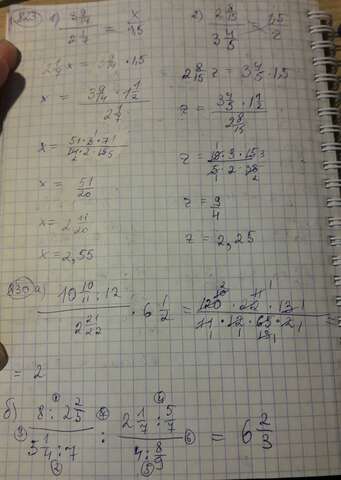 829 1) 3 9/14 / 2 1/7 = x / 1,5
2 1/7 x = 3 9/14 · 1,5
x = 3 9/14 · 1 1/2 / 2 1/7
x = 51 · 3 · 7 / 14 · 2 · 15
x = 51/20
x = 2 11/20
x = 2,55
2) 2 8/15 / 3 4/5 = 1,5 / z
2 8/15 z = 3 4/5 · 1,5
z = 3 4/5 · 1 1/2 / 2 8/15
z = 19 · 3 · 15 / 5 · 2 · 38
z = 9/4
z = 2,25
830 а) 10 10/11 : 12 / 2 21/22 · 6 1/2 = 120 · 22 · 13 / 11 · 12 · 65 · 2 =
= 2
б) 8 : 2 2/5 / 5 1/4 : 7 : 2 1/7 : 5/7 / 4 : 8/9 = 6 2/3